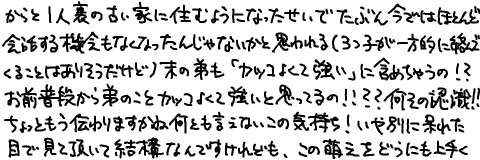 からと1人裏の古い家に住むようになったせいでたぶん今ではほとんど
会話する機会もなくなったんじゃないかと思われる(3つ子が一方的に絡んで
くることはありそうだけど)末の弟も「カッコよくて強い」に含めちゃうの!?
お前普段から弟のことカッコよくて強いと思ってるの!!??何その認識!!
ちょっともう伝わりますかね何とも言えないこの気持ち!いや別に呆れた
目で見て頂いて結構なんですけれども、この萌えをどうにも上手く